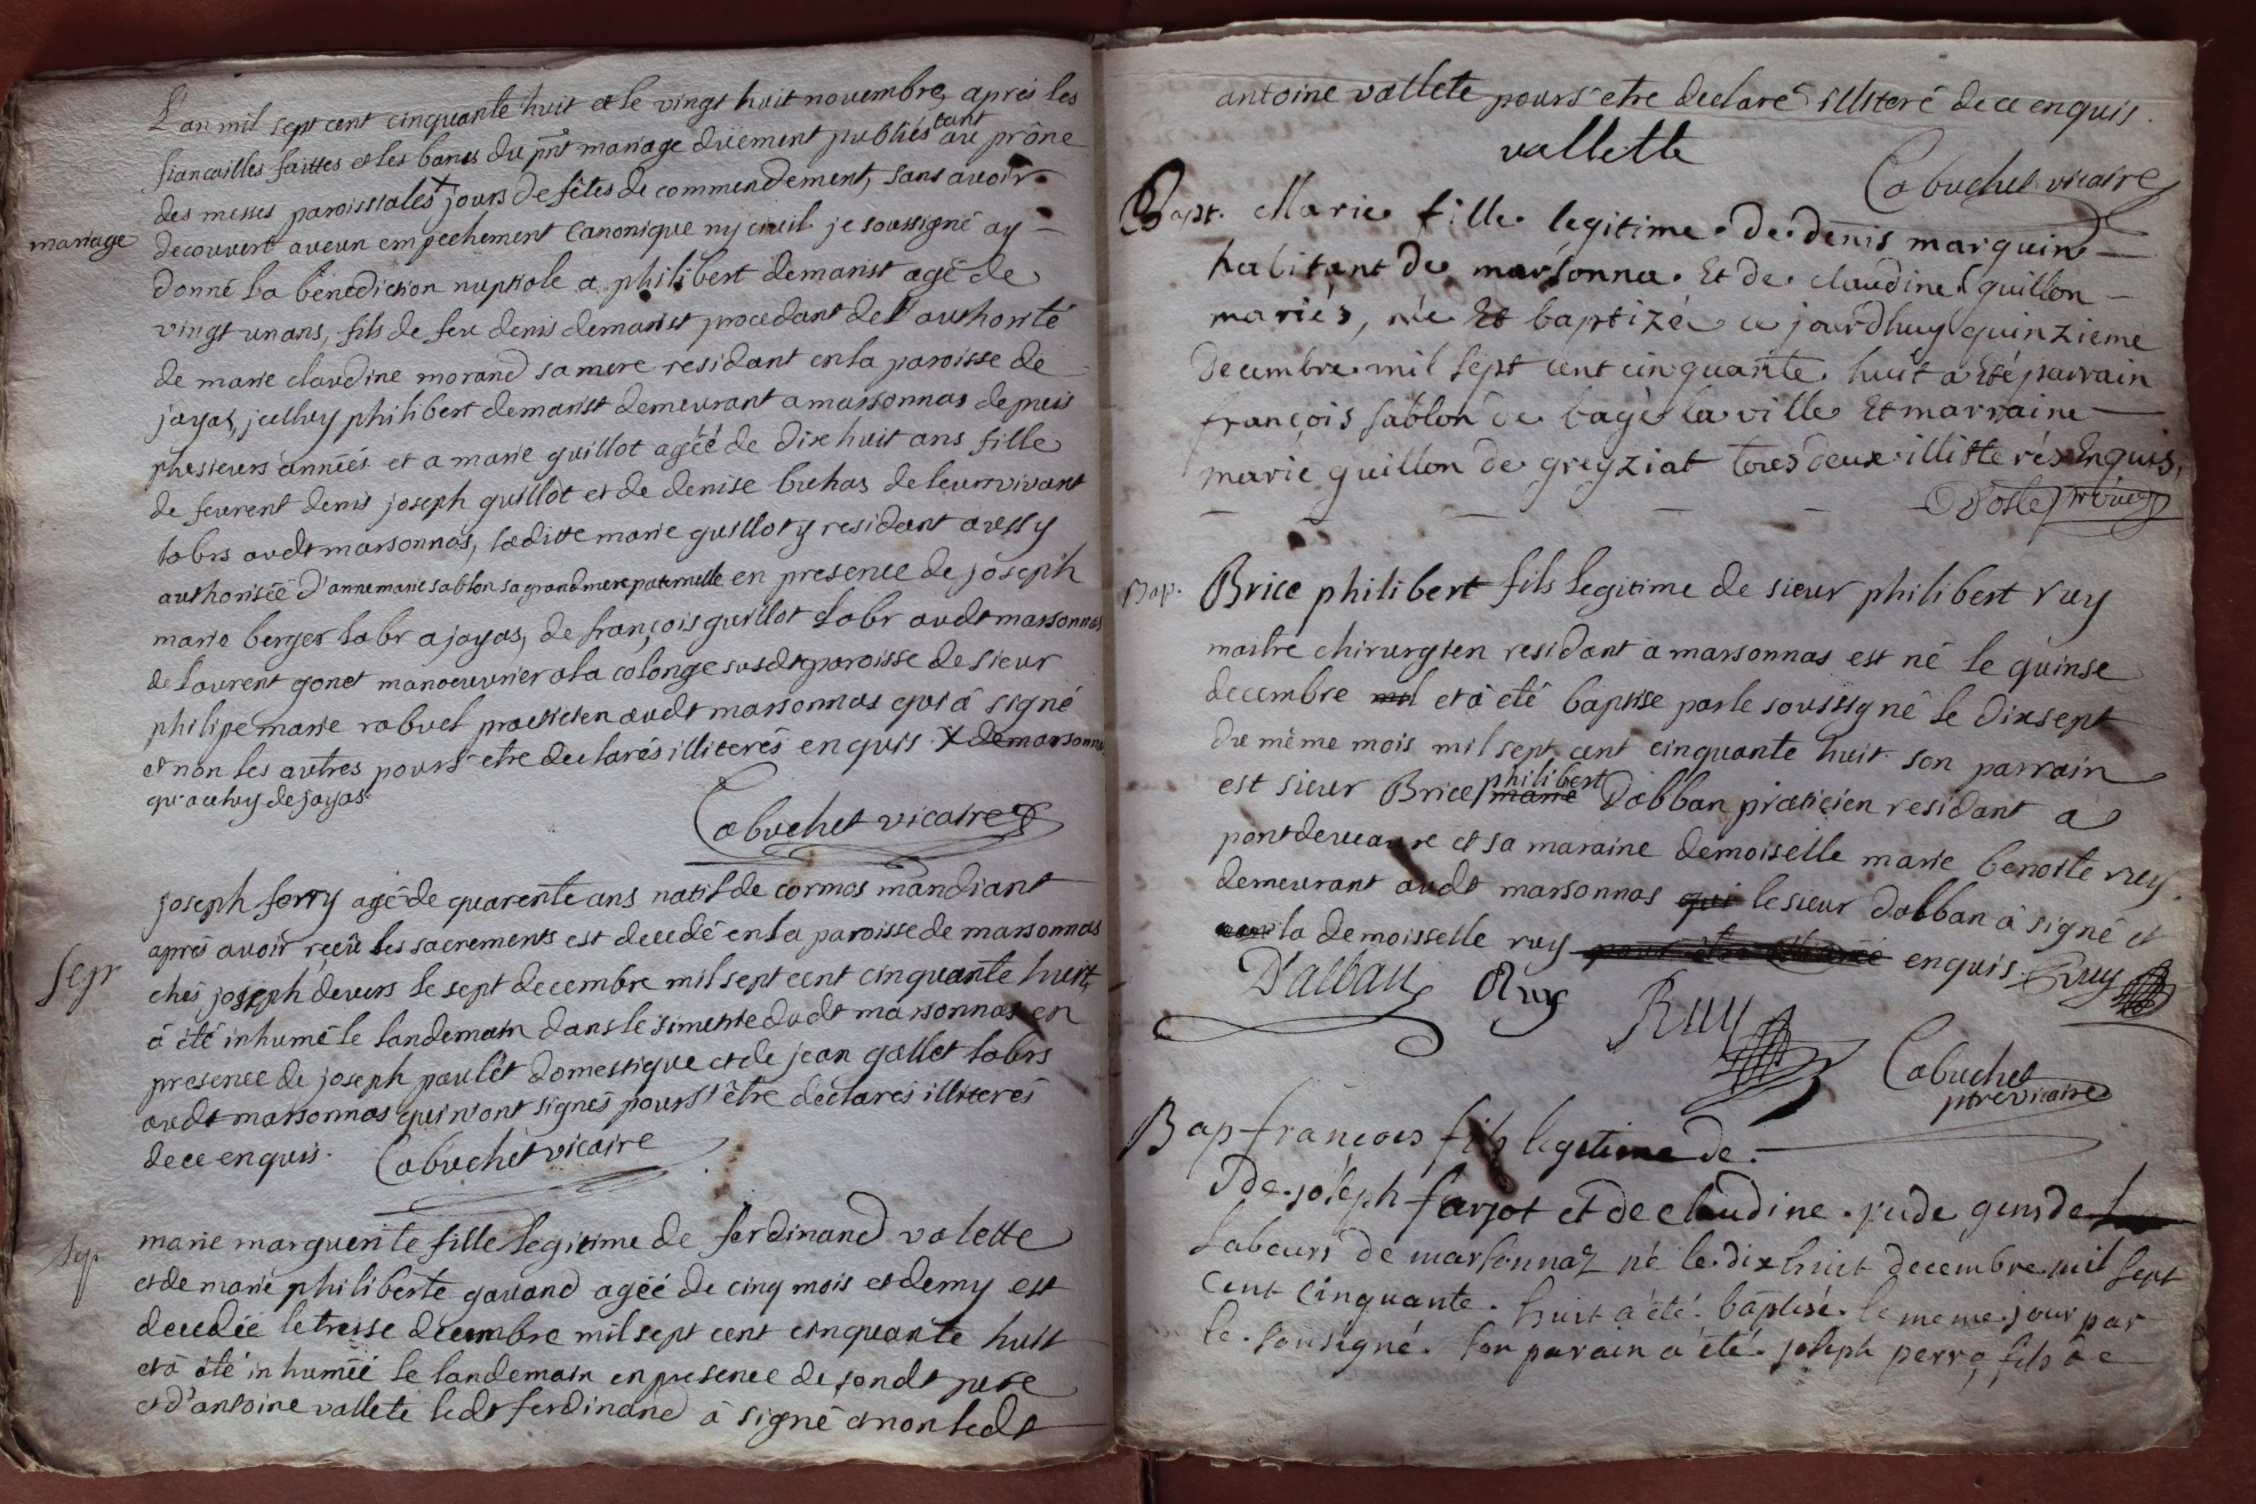 L'an mil sept cent cinquante huit et le vingt huit novembre, apres les
fiancailles faittes et les bancs du pnt mariage düement publiés tant au prône
des messes paroissiales + jours de fêtes de commendement, sans avoir
mariage
decouvert aucun empechement canonique ny civil je soussigné ay
donné la bénediction nuptiale a philibert demarist agé de
vingt un ans, fils de feu denis demarist procedant de l'authorité
de marie claudine morand sa mere residant en la paroisse de
jayat, jcelluy philibert demarist demeurant a marsonnas depuis
plusieurs années et a marie guillot agéé de dix huit ans fille
de feurent denis joseph guillot et de denise buhas de leur vivant
labrs audt marsonnas, laditte marie guillot y residant aussy
authorisée d'anne marie sablon sa grand mere paternelle en presence de joseph
marie berger labr a jayas, de françois guillot labr audt marsonnas
de laurent gonet manoeuvrier a la colonge susdt paroisse de sieur
philipe marie rabuel practicien audt marsonnas qui à signé
et non les autres pour s'etre declarés illiterés enquis. X de marsonnas
qu'a celuy de jayas.
Cabuchet vicaire
joseph ferry agé de quarente ans natif de cormos mandiant
aprés avoir reçû les sacrements est decedé en la paroisse de marsonnas
Sepr
chés joseph devers le sept decembre mil sept cent cinquante huit,
à été inhumé le landemain dans le simetiere dudt marsonnas en
presence de joseph paulet domestique et de jean gallet labrs
audt marsonnas qui n'ont signés pour s'être declarés illiterés
de ce enquis. Cabuchet vicaire
Sep
marie marguerite fille legitime de ferdinand valette
et de marie philiberte gavand agéé de cinq mois et demy est
decedée le tresse decembre mil sept cent cinquante huit
et à été inhuméé le landemain en presence de sondt pere
et d'antoine vallete ledt ferdinand à signé et non ledt
antoine vallete pour s'etre declaré illiteré de ce enquis.
vallette
Cabuchet vicaire
Bapt. Marie fille legitime de denis marguin
habitant de marsonna. Et de claudine guillon
mariés, née Et baptizée ce jourd'huy quinzieme
decembre mil sept cent cinquante huit a été parrain
françois sablon de bagé la ville Et marraine
marie guillon de greyziat tous deux illitterés Enquis,
Bap. Brice philibert fils legitime de sieur philibert ruy
maitre chirurgien residant à marsonnas est né le quinse
decembre mil et à été baptisse par le soussigné le dix sept
du même mois mil sept cent cinquante huit son parrain
est sieur Brice philibert marie dalban praticien residant a
pontdevaux et sa maraine demoiselle marie benoite ruy
demeurant audt marsonnas qui le sieur dalban à signé et
la demoisselle ruy enquis. Ruy
D'alban Ruy Ruy
Cabuchet
ptre vicaire
Bap françois fils legitime de
de joseph farjot et de claudine jude gens de
Labeurs de marsonnaz né le dix huit decembre mil sept
cent cinquante huit a été baptisé le meme jour par
le sousigné. son parain a été joseph perre, fils de